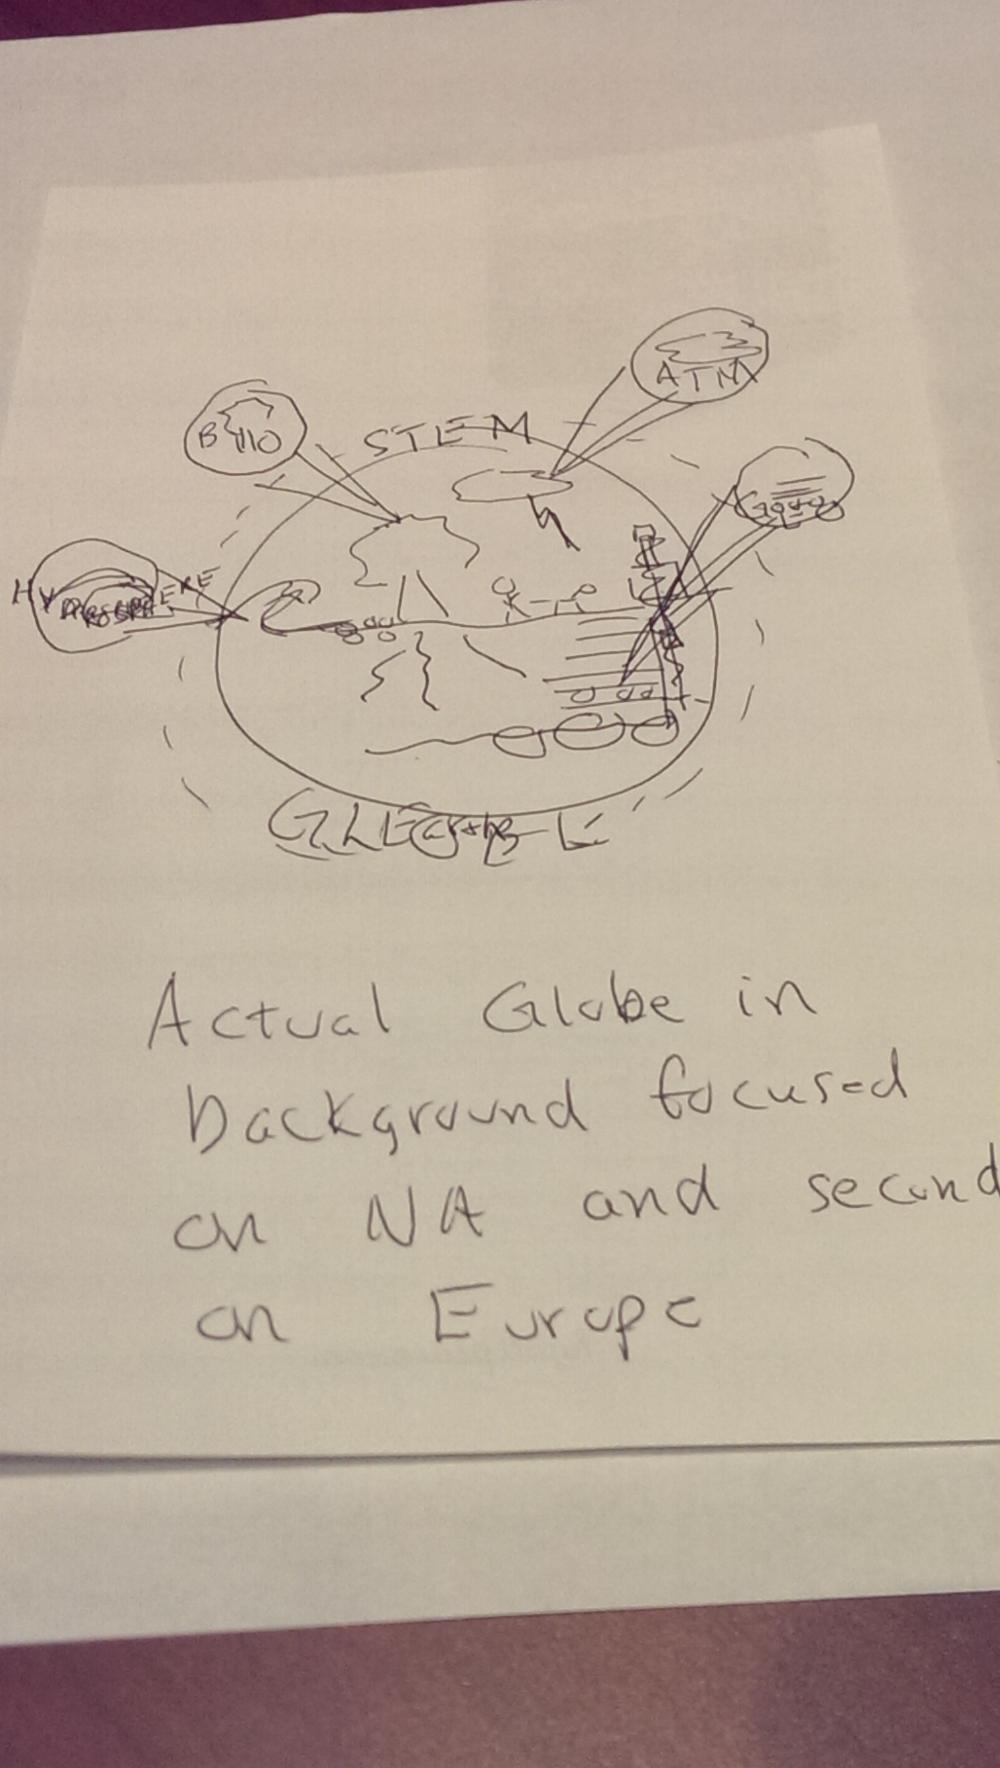 ATM
STEM
BIO
HYDROSPHERE
Actual Globe in
background focused
on NA and second
on Europe